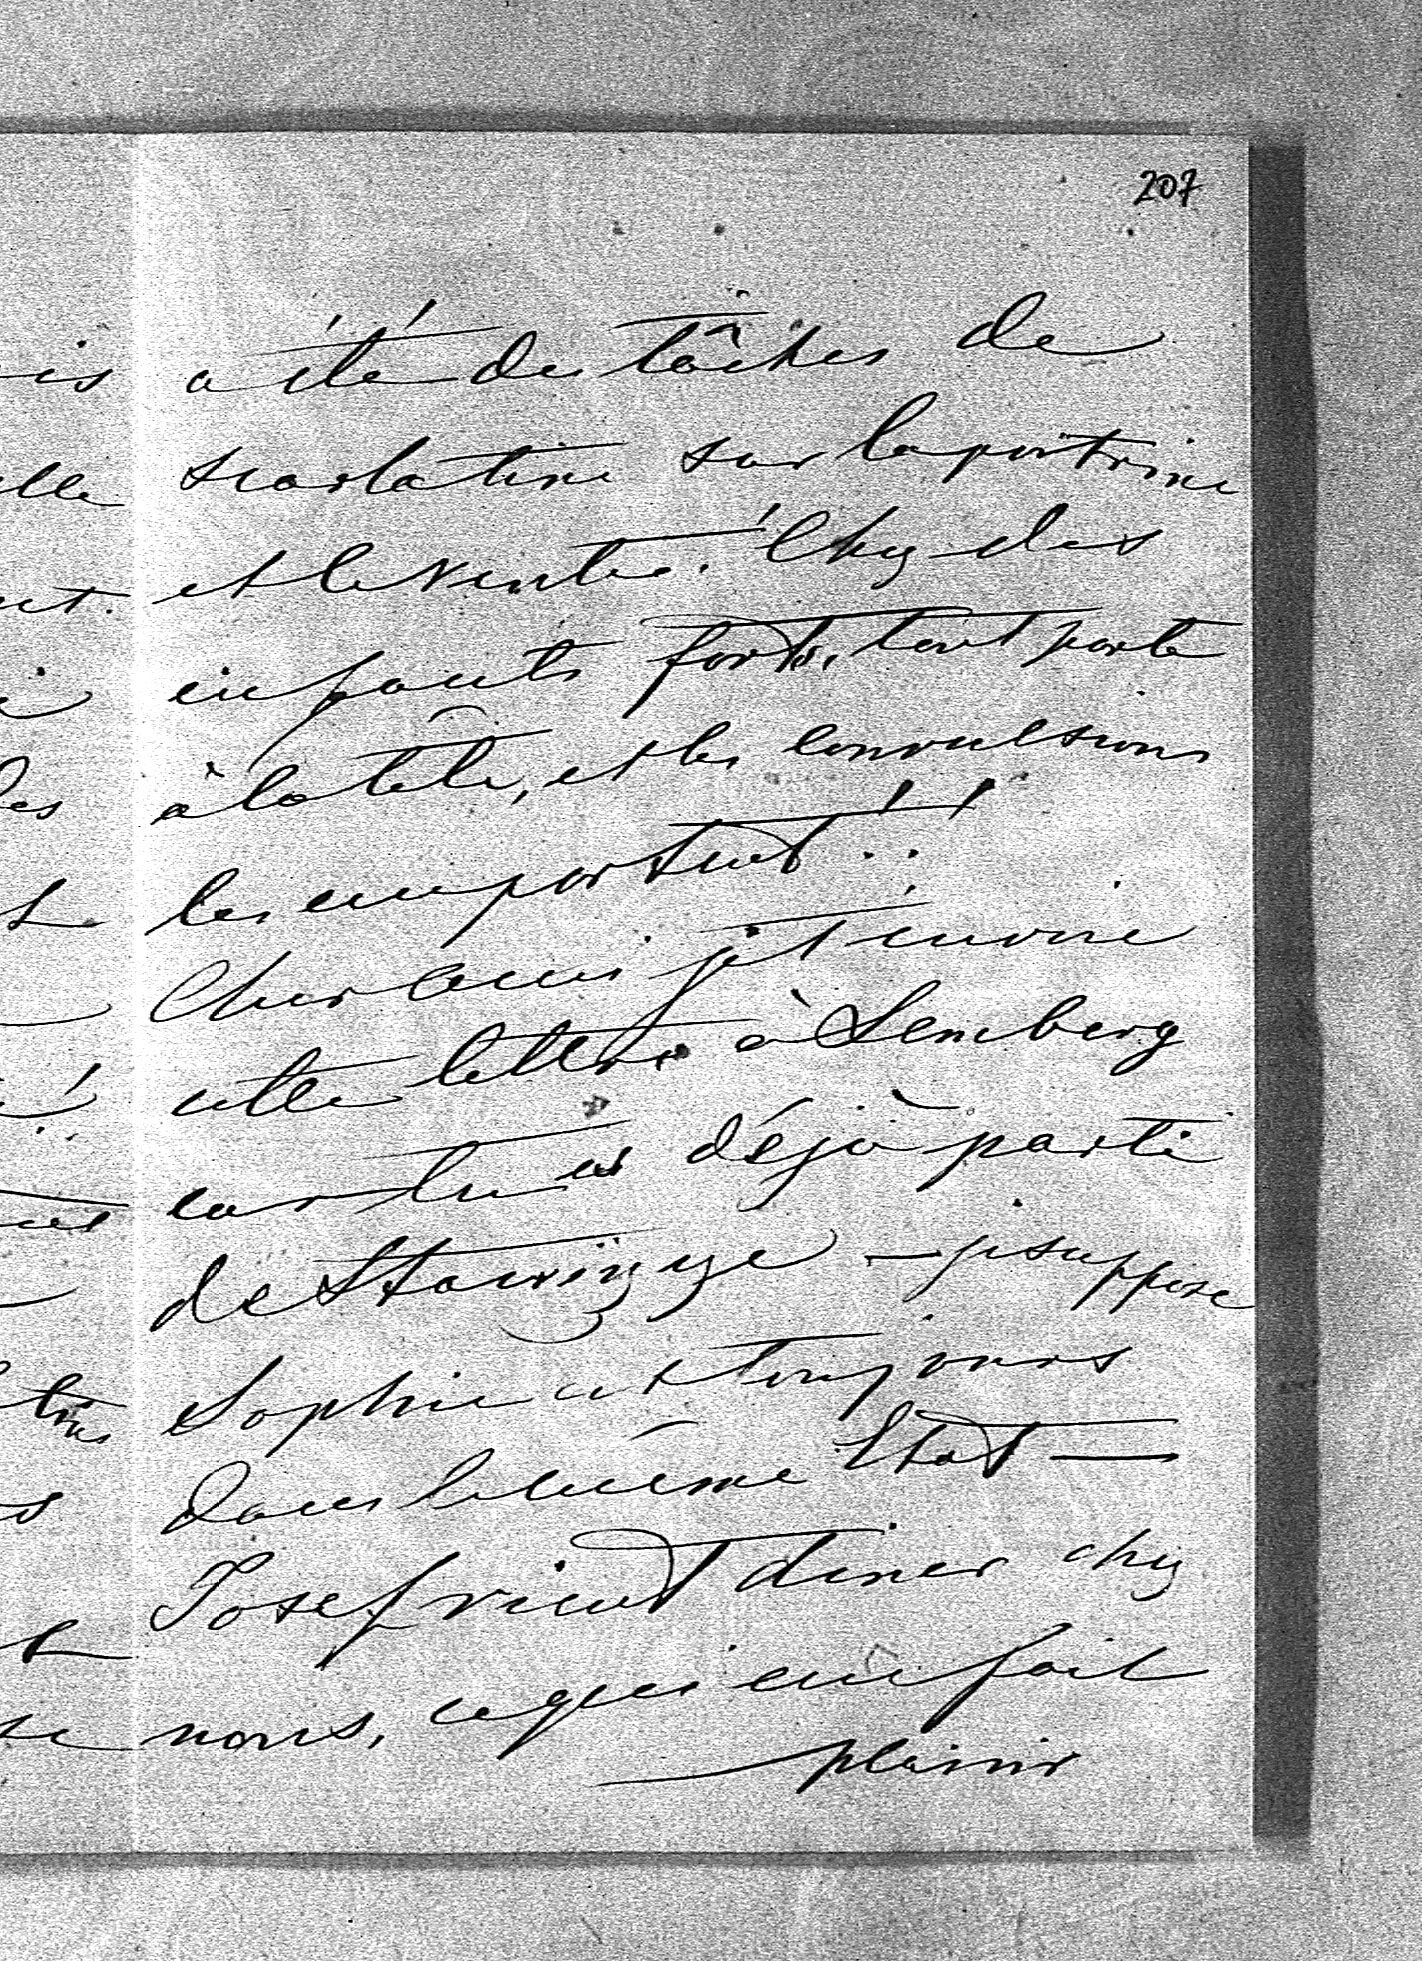 207
is a été des tâches de
elle scarlatine sur la poitrine
et le ventre. Chez des
enfants forts, tout porte
les à la tête, et les convulsions
les emportent!!
Cher ami je t'envoie
cette lettre à Lemberg
car tu es déjà parti
de – je suppose
Sophie est toujours
dans le même état —
Josef vient diner chez
nous, ce qui me fait
plaisir